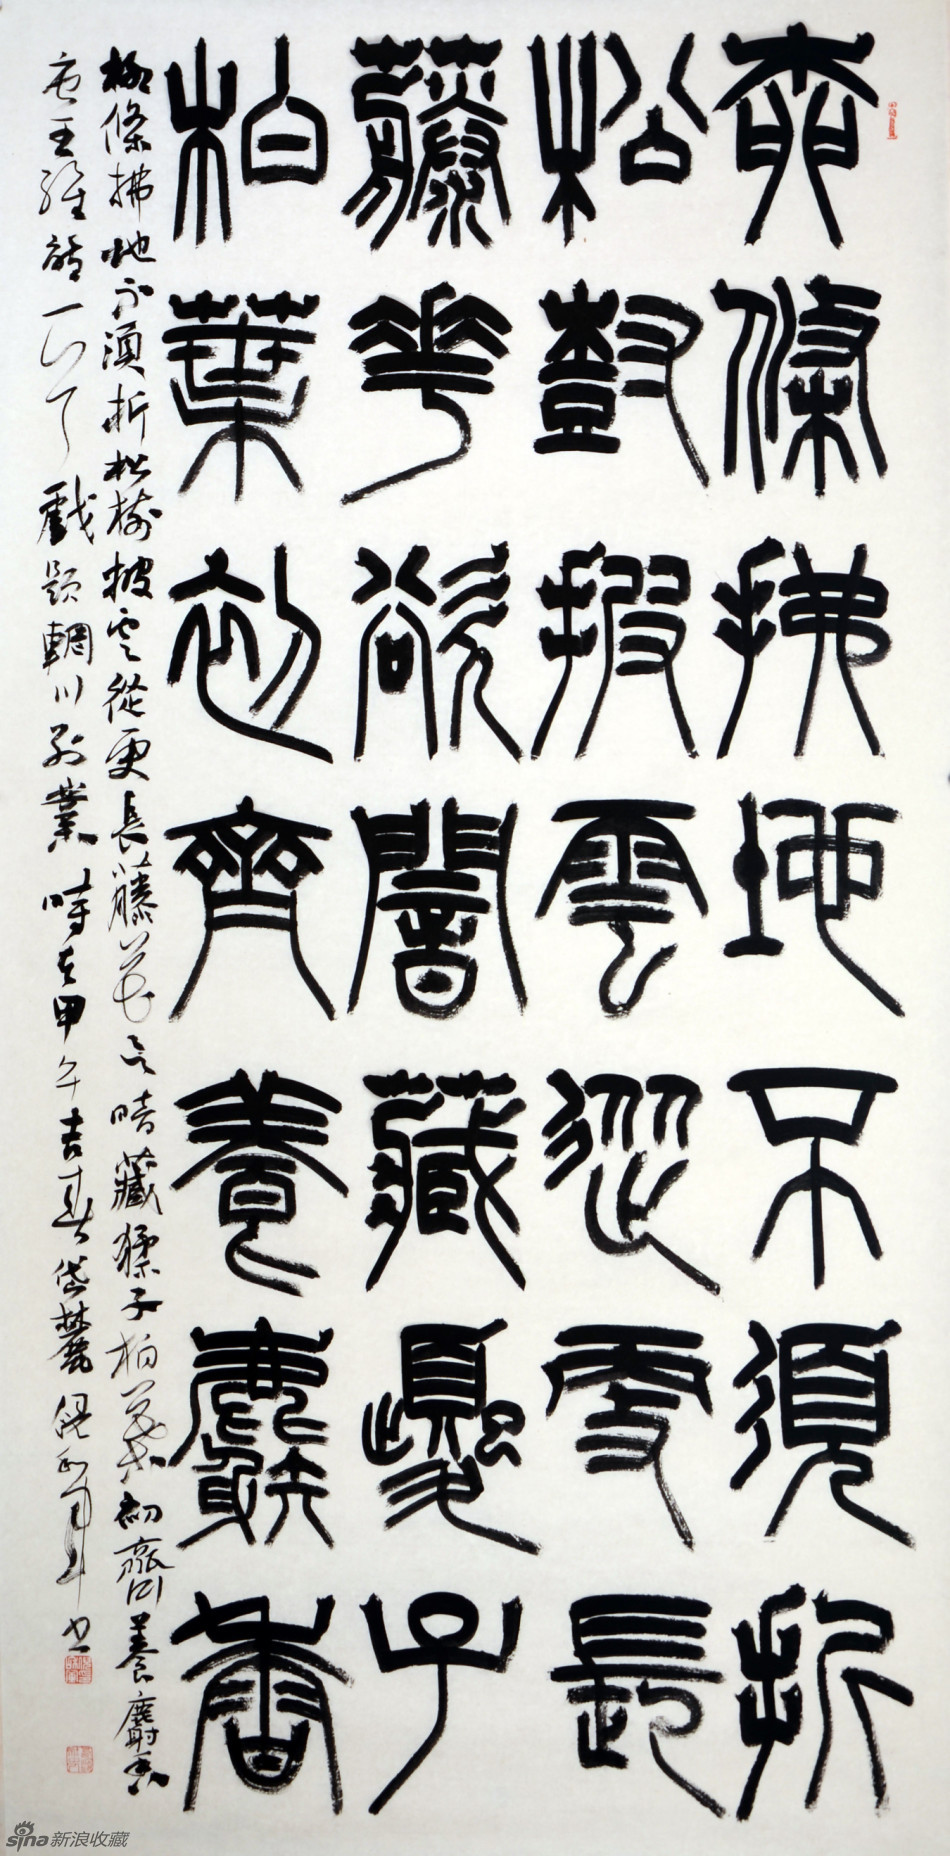 柳條拂地不須折
松尌披雲從更長
藤花欲闇藏夒子
柏葉初齊養麝香
柳條拂地不須折松樹披雲從更長藤花欲暗藏猱子柏葉初齊養麝香
唐王維詩一首戲題輞川別業時在甲午吉春岱麓書
sina新浪收藏